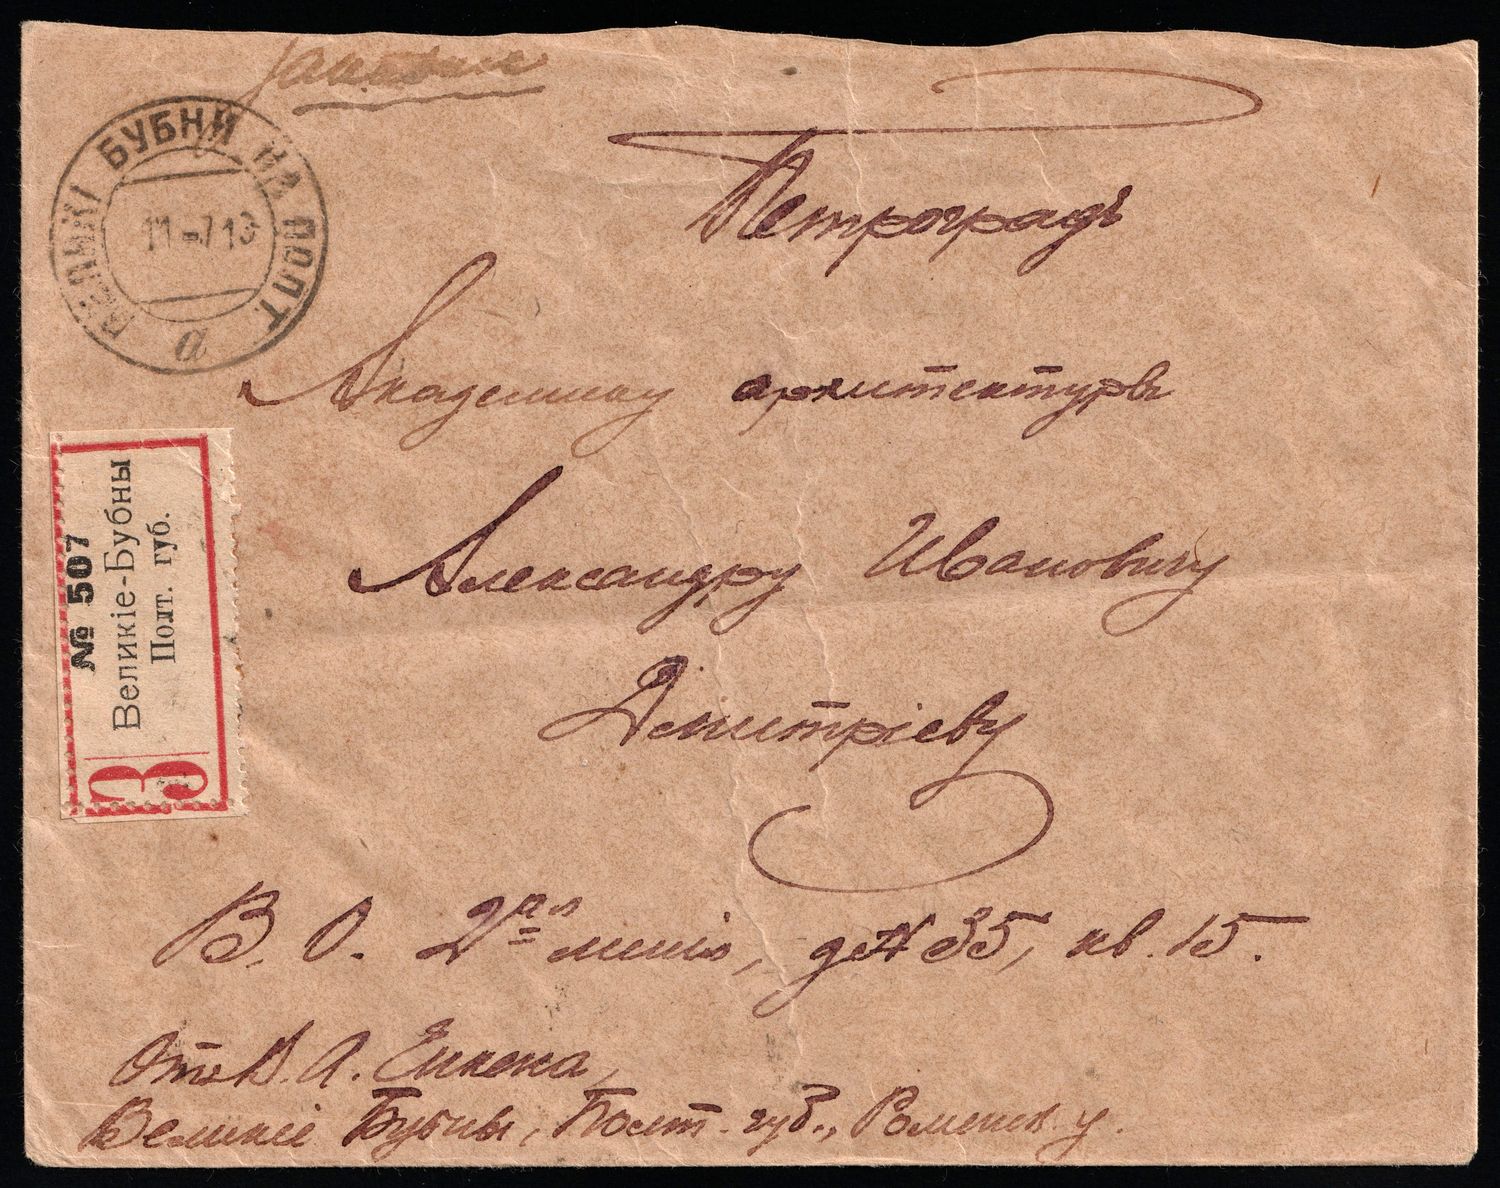 Заказное
ВЕЛИКІ БУБНИ НА ПОЛТ.
11-7 18
а
Петроградъ
Академику архитектуры
Александру Ивановичу
Дмитріеву
№ 507
Великіе-Бубны
Полт. губ.
З
В. О. 2ая линія, д № 35, кв. 15.
Отъ В. А. Еннена,
Великіе Бубны, Полт. губ., Роменск. у.